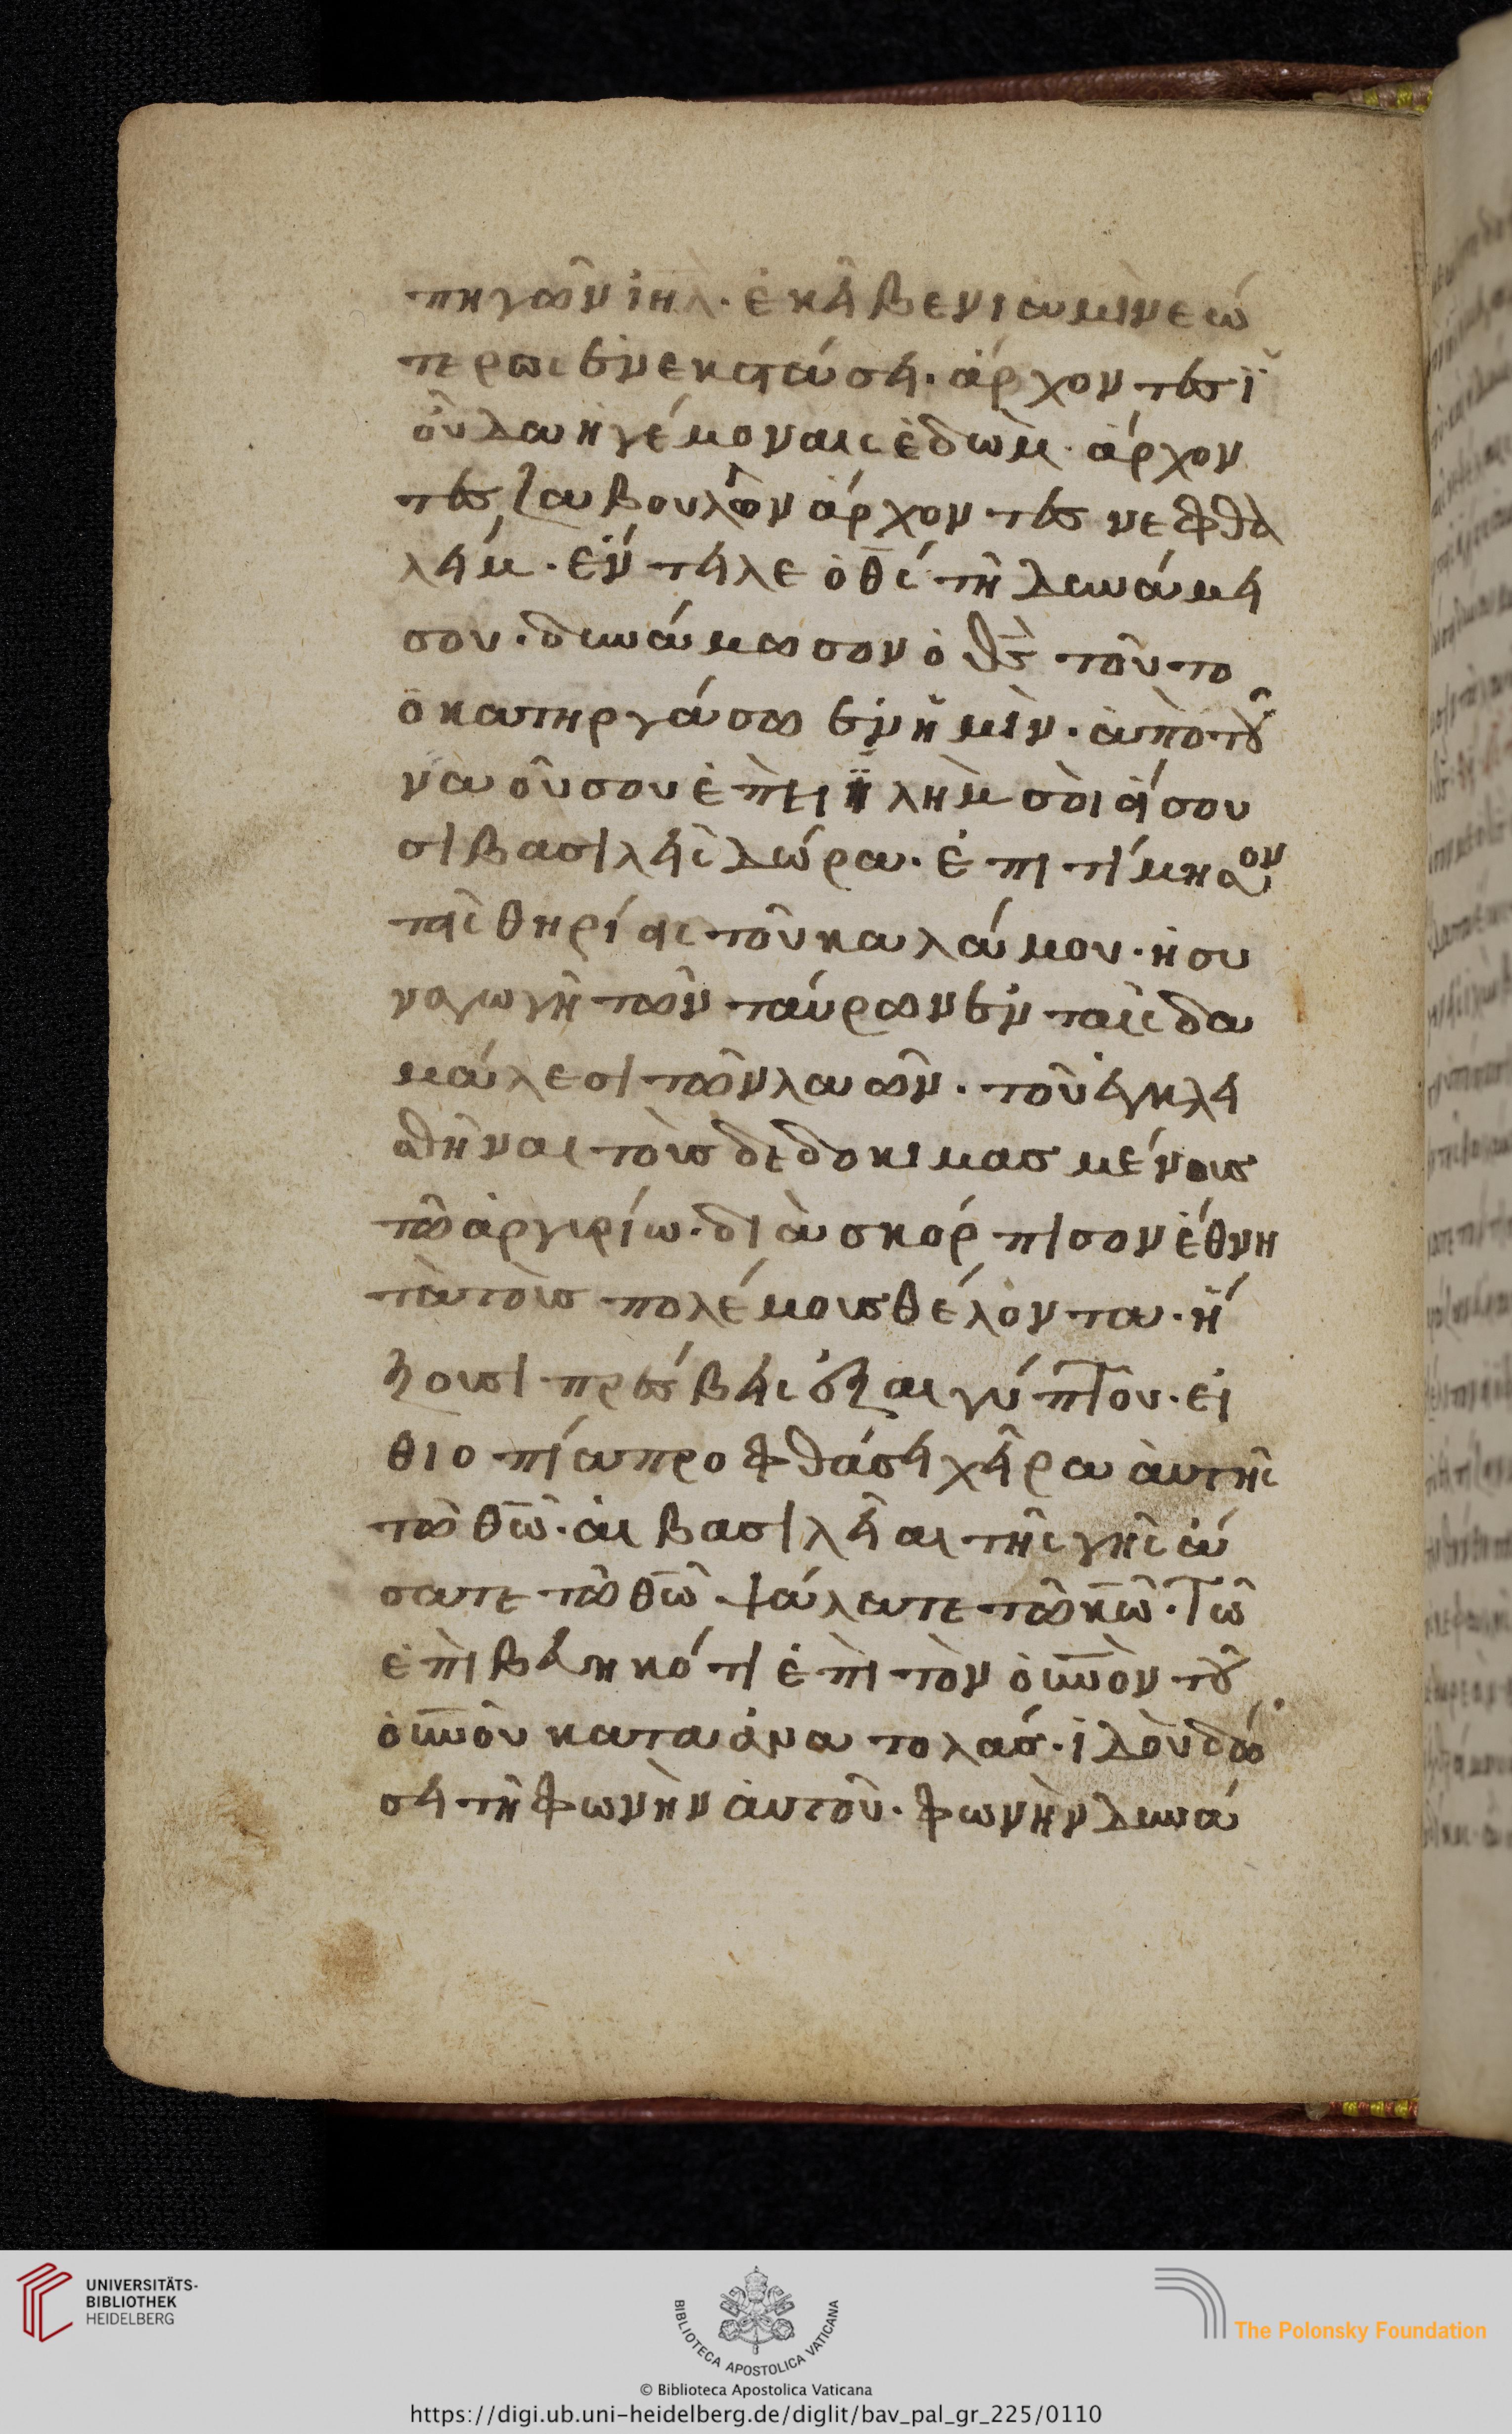 πηγῶν ἰηλ̀. ἐκεῖ βενιαμὶν εώ
τερος ἐν εκστάσει. ἀρχοντες ἰ
οῦδα ἡγέμοναις ἐδὼμ. ἀρχον
τες ζαβουλῶν ἀρχοντες νεφθα
λείμ. εν́τειλε ὁ θ̅ς́ τῆ δυνάμει
σου. δυνάμωσον ὁ θ̅ς̀ τοῦτο
ὁ κατηργάσω ἐν ἡμὶν. ἀπὸ τοῦ
ναοῦ σου ἐπὶ ϊλὴμ σὸι οίσου
σι βασιλεῖς δώρα. ἐπιτίμησον
τοῖς θηρίοις τοῦ καλάμου. ἡ συ
ναγωγῆ τῶν ταύρων ἐν ταῖς δα
μάλεσι τῶν λαῶν. τοῦ ἐγκλει
σθῆναι τοὺς δεδοκιμασμένους
τῶ ἀργυρίω. διὰσκόρπισον ἐθνη
τὰ τοὺς πολέμους θέλὸντα. ἥ
ξουσι πρέσβεις ἐξ αιγύπτου. εἰ
θιοπία προφθάσει χεῖρα ἀυτῆς
τῶ θ̅ῶ. ἁι βασιλεῖαι τῆς γῆς ά
σατε τῶ θ̅ῶ ψάλατε τῶ κ̅ῶ. Τῶ
ἐπὶβεβηκότι ἐπὶ τὸν ὀυ̅ν̅ὸν τοῦ
ὀυ̅ν̅οῦ κατα ἀνατολάς. ἰδοὺ δώ
σει τῆ φωνὴν ἀυτοῦ. φωνὴν δυνά
UNIVERSITÄTS-
BIBLIOTHEK
HEIDELBERG
BIBLIOTECA APOSTOLICA VATICANA
© Biblioteca Apostolica Vaticana
The Polonsky Foundation
https://digi.ub.uni-heidelberg.de/diglit/bav_pal_gr_225/0110